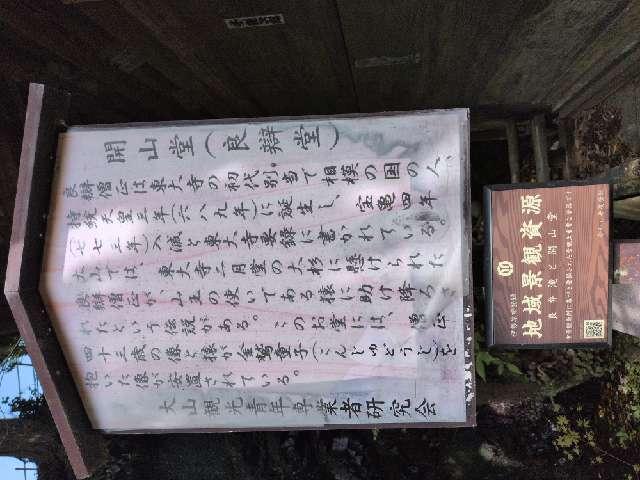 開山堂(良辯堂)
良辯僧正は東大寺の初代別当で相模の国の人、
持統天皇三年(六八九年)に誕生し、宝亀四年
(七七三年)入滅と東大寺要録に書かれている。
大山では、東大寺二月堂の大杉に懸けられた
良辯僧正が、山王の使いである猿に助け降ろさ
れたという伝説がある。このお堂には、僧正
四十三歳の像と猿が金鷲童子(こんじゅどうじ)を
抱いた像が安置されている。
大山観光青年専業者研究会
伊勢原市登録
地域景観資源
良弁滝と開山堂